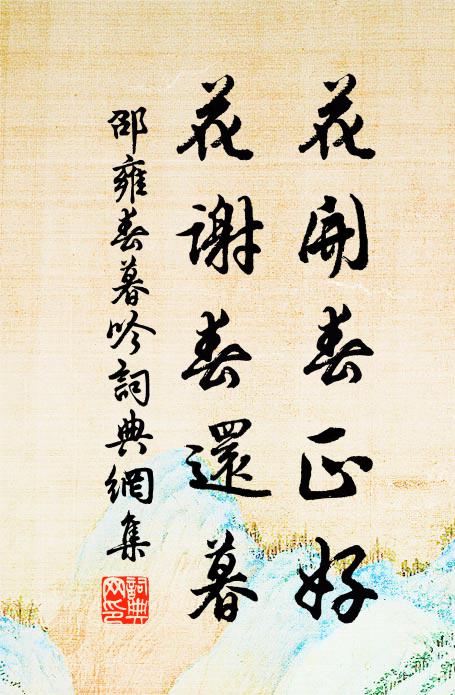 花開春正好
花謝春還暮
邵雍春暮吟詞典網集
詞典
文化